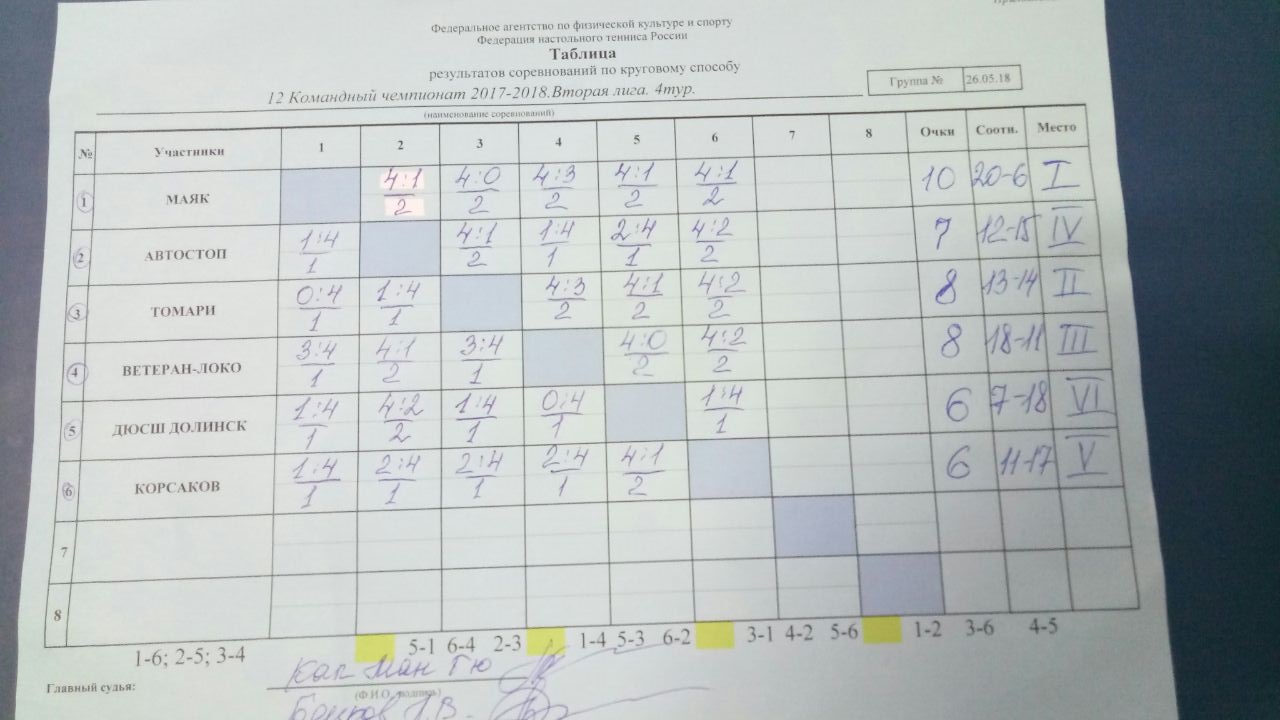 Федеральное агентство по физической культуре и спорту
Федерация настольного тенниса России
Таблица
результатов соревнований по круговому способу
Группа № 26.05.18
12 Командный чемпионат 2017-2018.Вторая лига. 4тур.
(наименование соревнований)
№ Участники 1 2 3 4 5 6 7 8 Очки Соотн. Место
1 МАЯК 4:1/2 4:0/2 4:3/2 4:1/2 4:1/2 10 20-6 I
2 АВТОСТОП 1:4/1 4:1/2 1:4/1 2:4/1 4:2/2 7 12-15 IV
3 ТОМАРИ 0:4/1 1:4/1 4:3/2 4:1/2 4:2/2 8 13-14 II
4 ВЕТЕРАН-ЛОКО 3:4/1 4:1/2 3:4/1 4:0/2 4:2/2 8 18-11 III
5 ДЮСШ ДОЛИНСК 1:4/1 4:2/2 1:4/1 0:4/1 1:4/1 6 7-18 VI
6 КОРСАКОВ 1:4/1 2:4/1 2:4/1 2:4/1 4:1/2 6 11-17 V
7
8
1-6; 2-5; 3-4 5-1 6-4 2-3 1-4 5-3 6-2 3-1 4-2 5-6 1-2 3-6 4-5
Главный судья: Кап Ман Гю
(Ф.И.О. подпись)